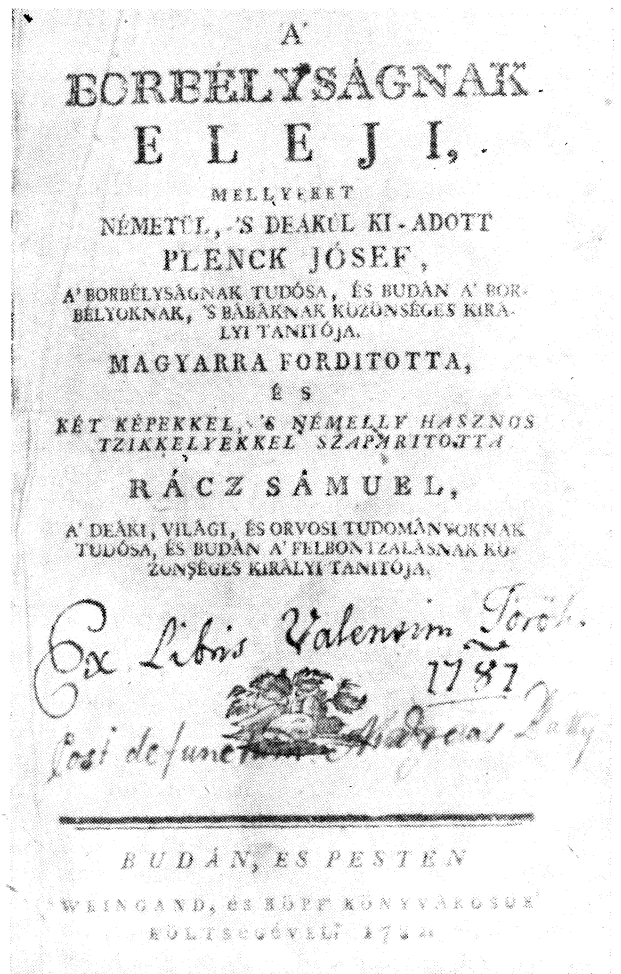 A'
BORBÉLYSÁGNAK
ELEJI,
MELLYEKET
NÉMETÜL, 'S DEÁKÚL KI-ADOTT
PLENCK JÓSEF,
A' BORBÉLYSÁGNAK TUDÓSA, ÉS BUDÁN A' BOR-
BÉLYOKNAK, 'S BÁBÁKNAK KÖZÖNSÉGES KIRÁ-
LYI TANITÓJA.
MAGYARRA FORDITOTTA,
ÉS
KÉT KÉPEKKEL, 'S NÉMELLY HASZNOS
TZIKKELYEKKEL SZAPORITOTTA
RÁCZ SÁMUEL,
A' DEÁKI, VILÁGI, ÉS ORVOSI TUDOMÁNYOKNAK
TUDÓSA, ÉS BUDÁN A' FELBONTZALÁSNAK KÖ-
ZÖNSÉGES KIRÁLYI TANITÓJA.
Ex Libris Valentini Török.
1787
Post defunctum Andreas
BUDÁN, ES PESTEN
WEINGAND, ÉS KÖPF KÖNYVÁROSOK'
KÖLTSÉGÉVEL,